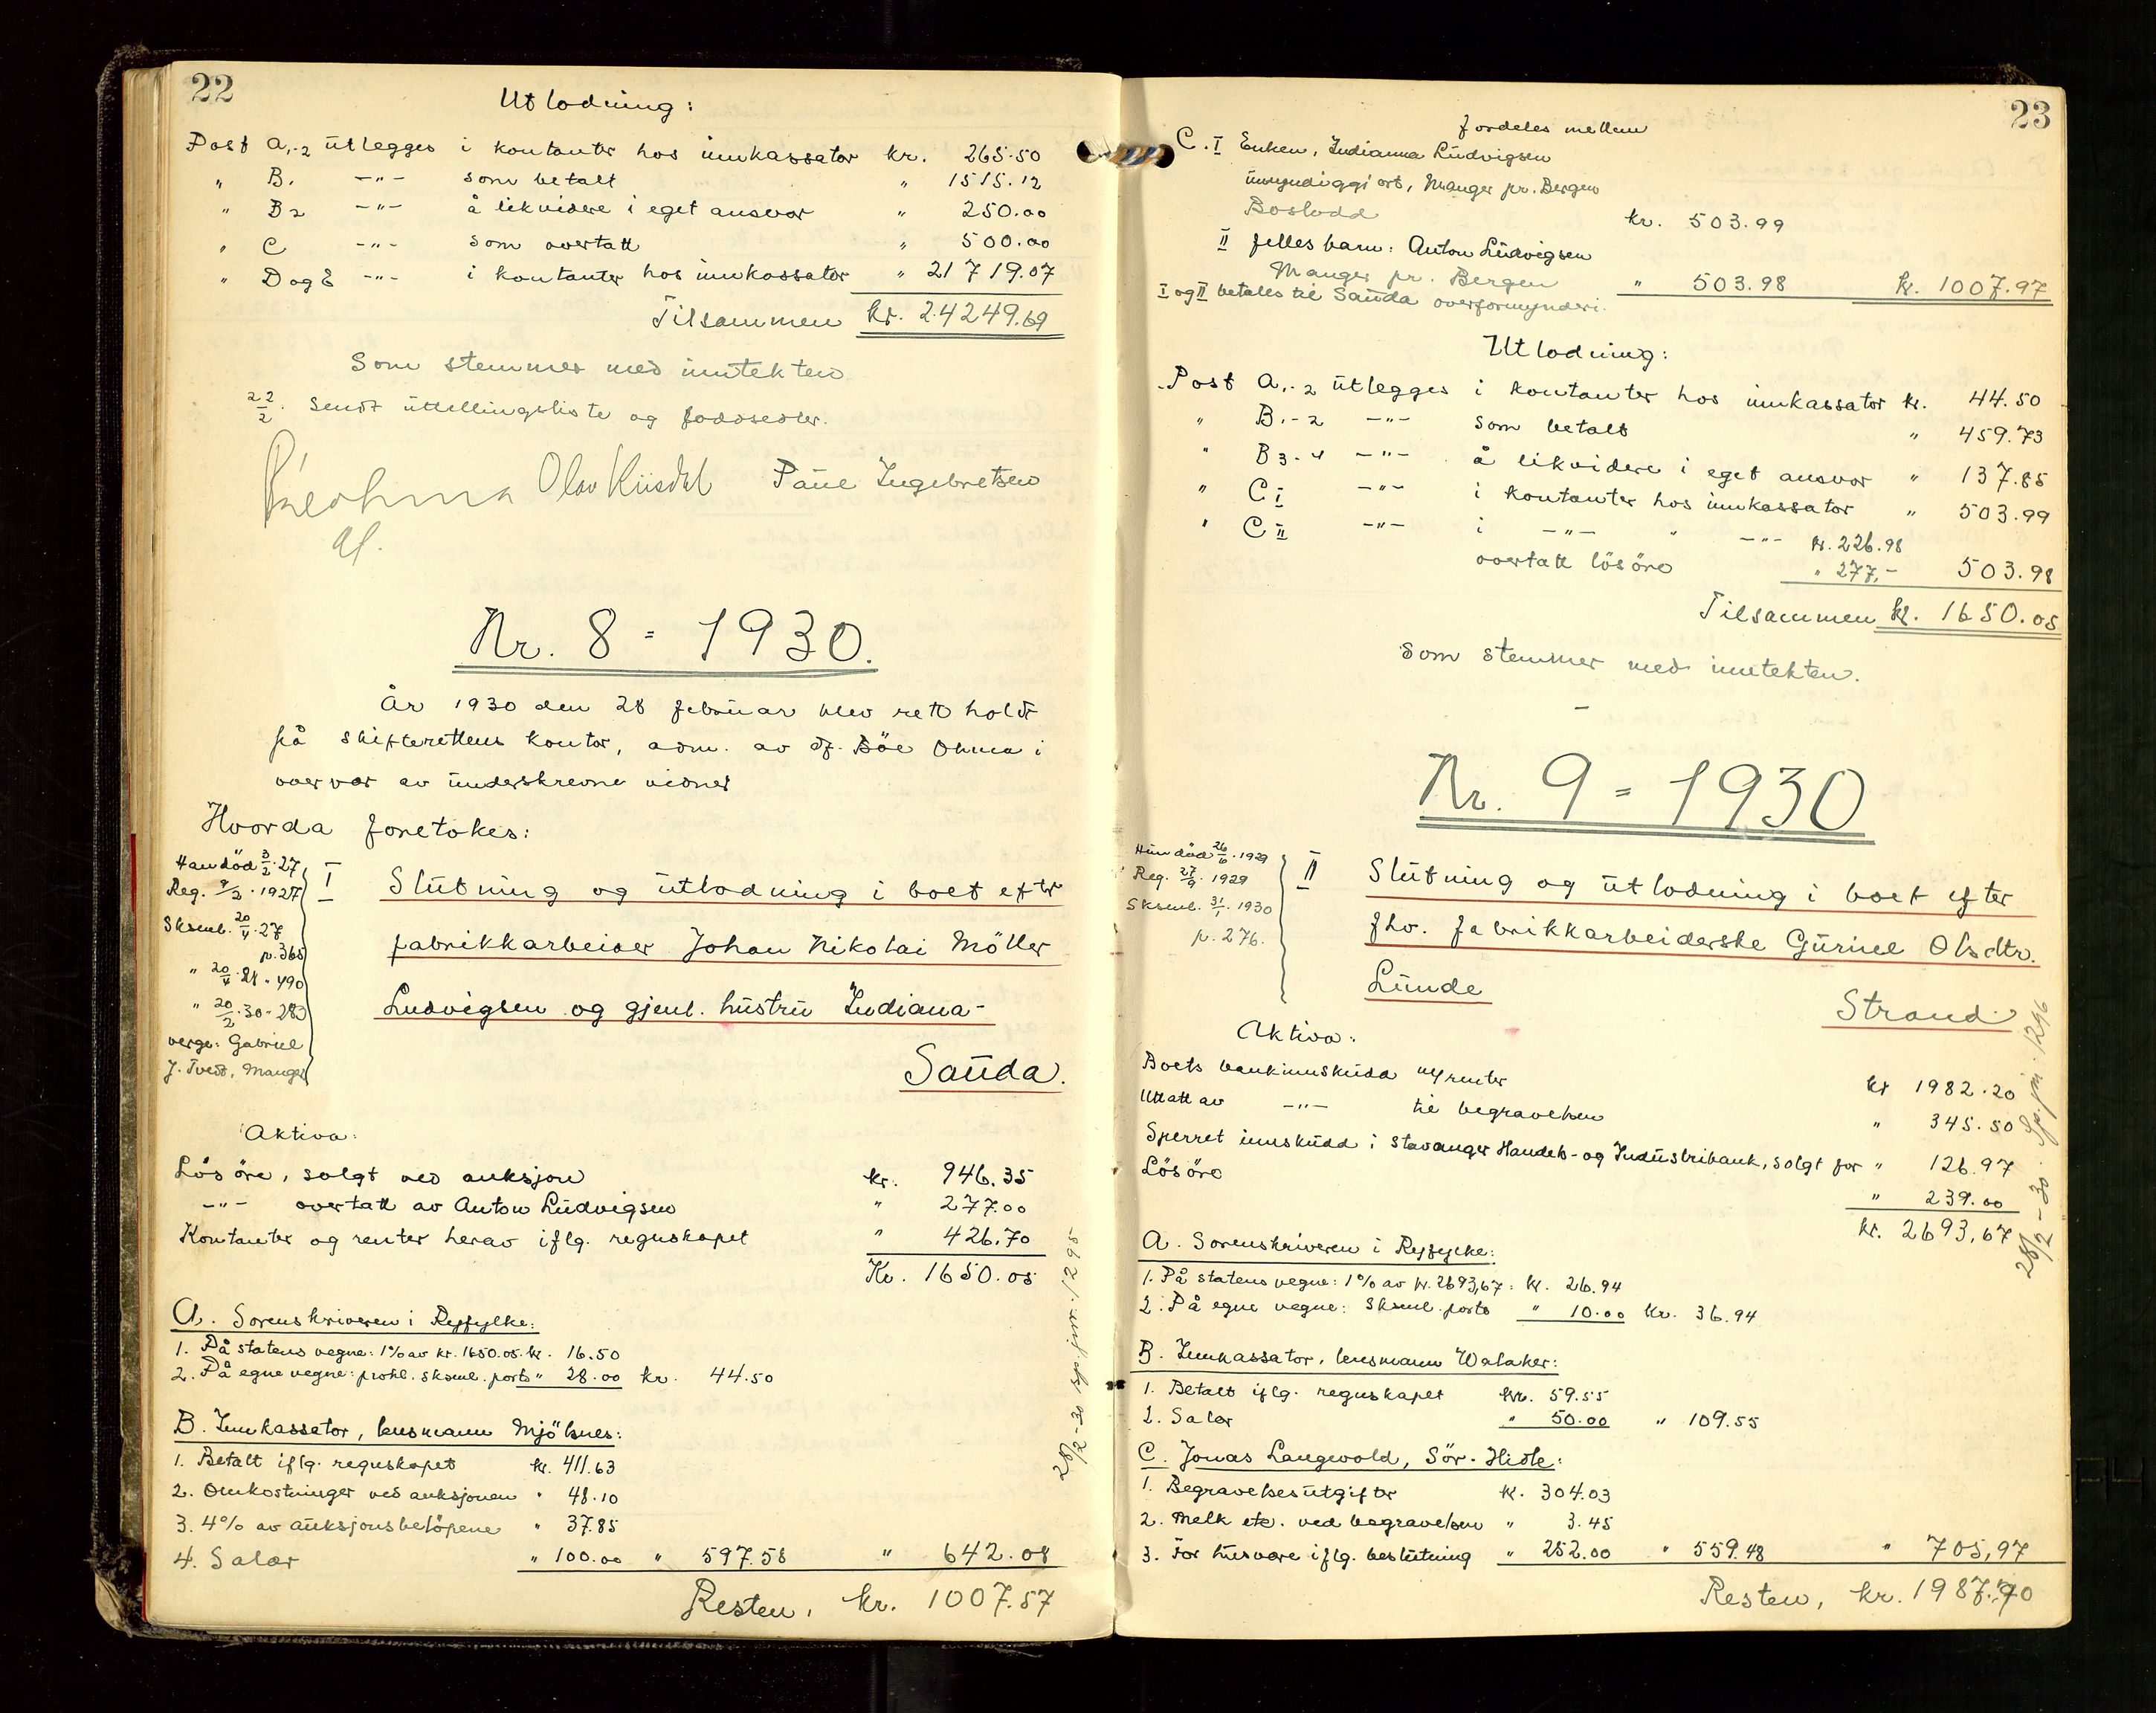 22
Utlodning:
Post A,-2 utlegges i kontanter hos innkassator kr. 265.50
" B1 -"- som betalt " 1515.12
" B2 -"- å likvidere i eget ansvar " 250.00
" C -"- som overtatt " 500.00
" D og E -"- i kontanter hos innkassator " 21719.07
Tilsammen kr. 24249.69
Som stemmer med inntekten
22/2. Sendt utteilingsliste og loddsedler.
Olav Kiisdal Paul Ingebretsen
Nr. 8 = 1930.
År 1930 den 28 februar blev rett holdt
på skifterettens kontor, adm. av df. Böe Ohma i
overvær av underskrevne vidner
Hvorda foretokes:
Han död 3/2.27
Reg. 9/2.1927
Sksml. 20/4.27
p.365
" 20/4.28 - 490
" 20/2.30 - 283
verge: Gabriel
J. Tveid, Manger
I Slutning og utlodning i boet efter
fabrikkarbeider Johan Nikolai Möller
Ludvigsen og gjenl. hustru Indiana -
Sauda.
Aktiva:
Lösöre, solgt ved auksjon kr. 946.35
-"- overtatt av Anton Ludvigsen " 277.00
Kontanter og renter herav iflg. regnskapet " 426.70
Kr. 1650.05
A. Sorenskriveren i Ryfylke:
1. På statens vegne: 1% av kr. 1650.05. kr. 16.50
2. På egne vegne: prokl. sksml. porto " 28.00 kr. 44.50
B. Innkassator, lensmann Mjölsnes:
1. Betalt iflg. regnskapet kr. 411.63
2. Omkostninger ved auksjonen " 48.10
3. 4% av auksjonsbelöpene " 37.85
4. Salær " 100.00 " 597.58 " 642.08
Resten, kr. 1007.57
28/2-30 sp. jnr. 1295
23
fordeles mellem
C. I Enken, Indianna Ludvigsen
umyndiggjort, Manger pr. Bergen
Boslodd kr. 503.99
II felles barn: Anton Ludvigsen
Manger pr. Bergen " 503.98 kr. 1007.97
I og II betales til Sauda overformynderi.
Utlodning:
Post A,-2 utlegges i kontanter hos innkassator kr. 44.50
" B1-2 -"- som betalt " 459.73
" B3-4 -"- å likvidere i eget ansvar " 137.85
" C I -"- i kontanter hos innkassator " 503.99
" C II -"- i -"- " -"- kr. 226.98
overtatt lösöre " 277,- 503.98
Tilsammen kr. 1650.05
Som stemmer med inntekten.
Nr. 9 = 1930
Hun död 26/6.1929
Reg. 27/9.1929
Sksml. 31/1.1930
p. 276.
II Slutning og utlodning i boet efter
fhv. fabrikkarbeiderske Guriel Olsdtr.
Lunde
Strand
Aktiva:
Boets bankinnskudd m/renter kr 1982.20
Uttatt av -"- til begravelsen " 345.50
Sperret innskudd i Stavanger Handels- og Industribank, solgt for " 126.97
Lösöre " 239.00
kr. 2693,67
A. Sorenskriveren i Ryfylke:
1. På statens vegne: 1% av kr. 2693,67: kr. 26.94
2. På egne vegne: Sksml. porto " 10.00 kr. 36.94
B. Innkassator, lensmann Walaker:
1. Betalt iflg. regnskapet kr. 59.55
2. Salær " 50.00 " 109.55
C. Jonas Langvold, Sör-Hidle:
1. Begravelsesutgifter kr. 304.03
2. Melk etc. ved begravelsen " 3.45
3. For husvære iflg. beslutning " 252.00 " 559.48 " 705,97
Resten, kr. 1987.70
28/2-30. Sp. jnr. 1296